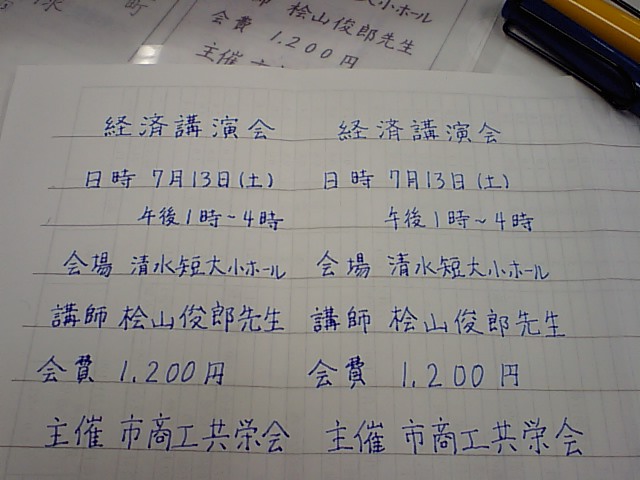 町
大小ホール
会費 1,200円 桧山俊郎先生
主催
経済講演会 経済講演会
日時 7月13日(土) 日時 7月13日(土)
午後1時~4時 午後1時~4時
会場 清水短大小ホール 会場 清水短大小ホール
講師 桧山俊郎先生 講師 桧山俊郎先生
会費 1,200円 会費 1,200円
主催 市商工共栄会 主催 市商工共栄会